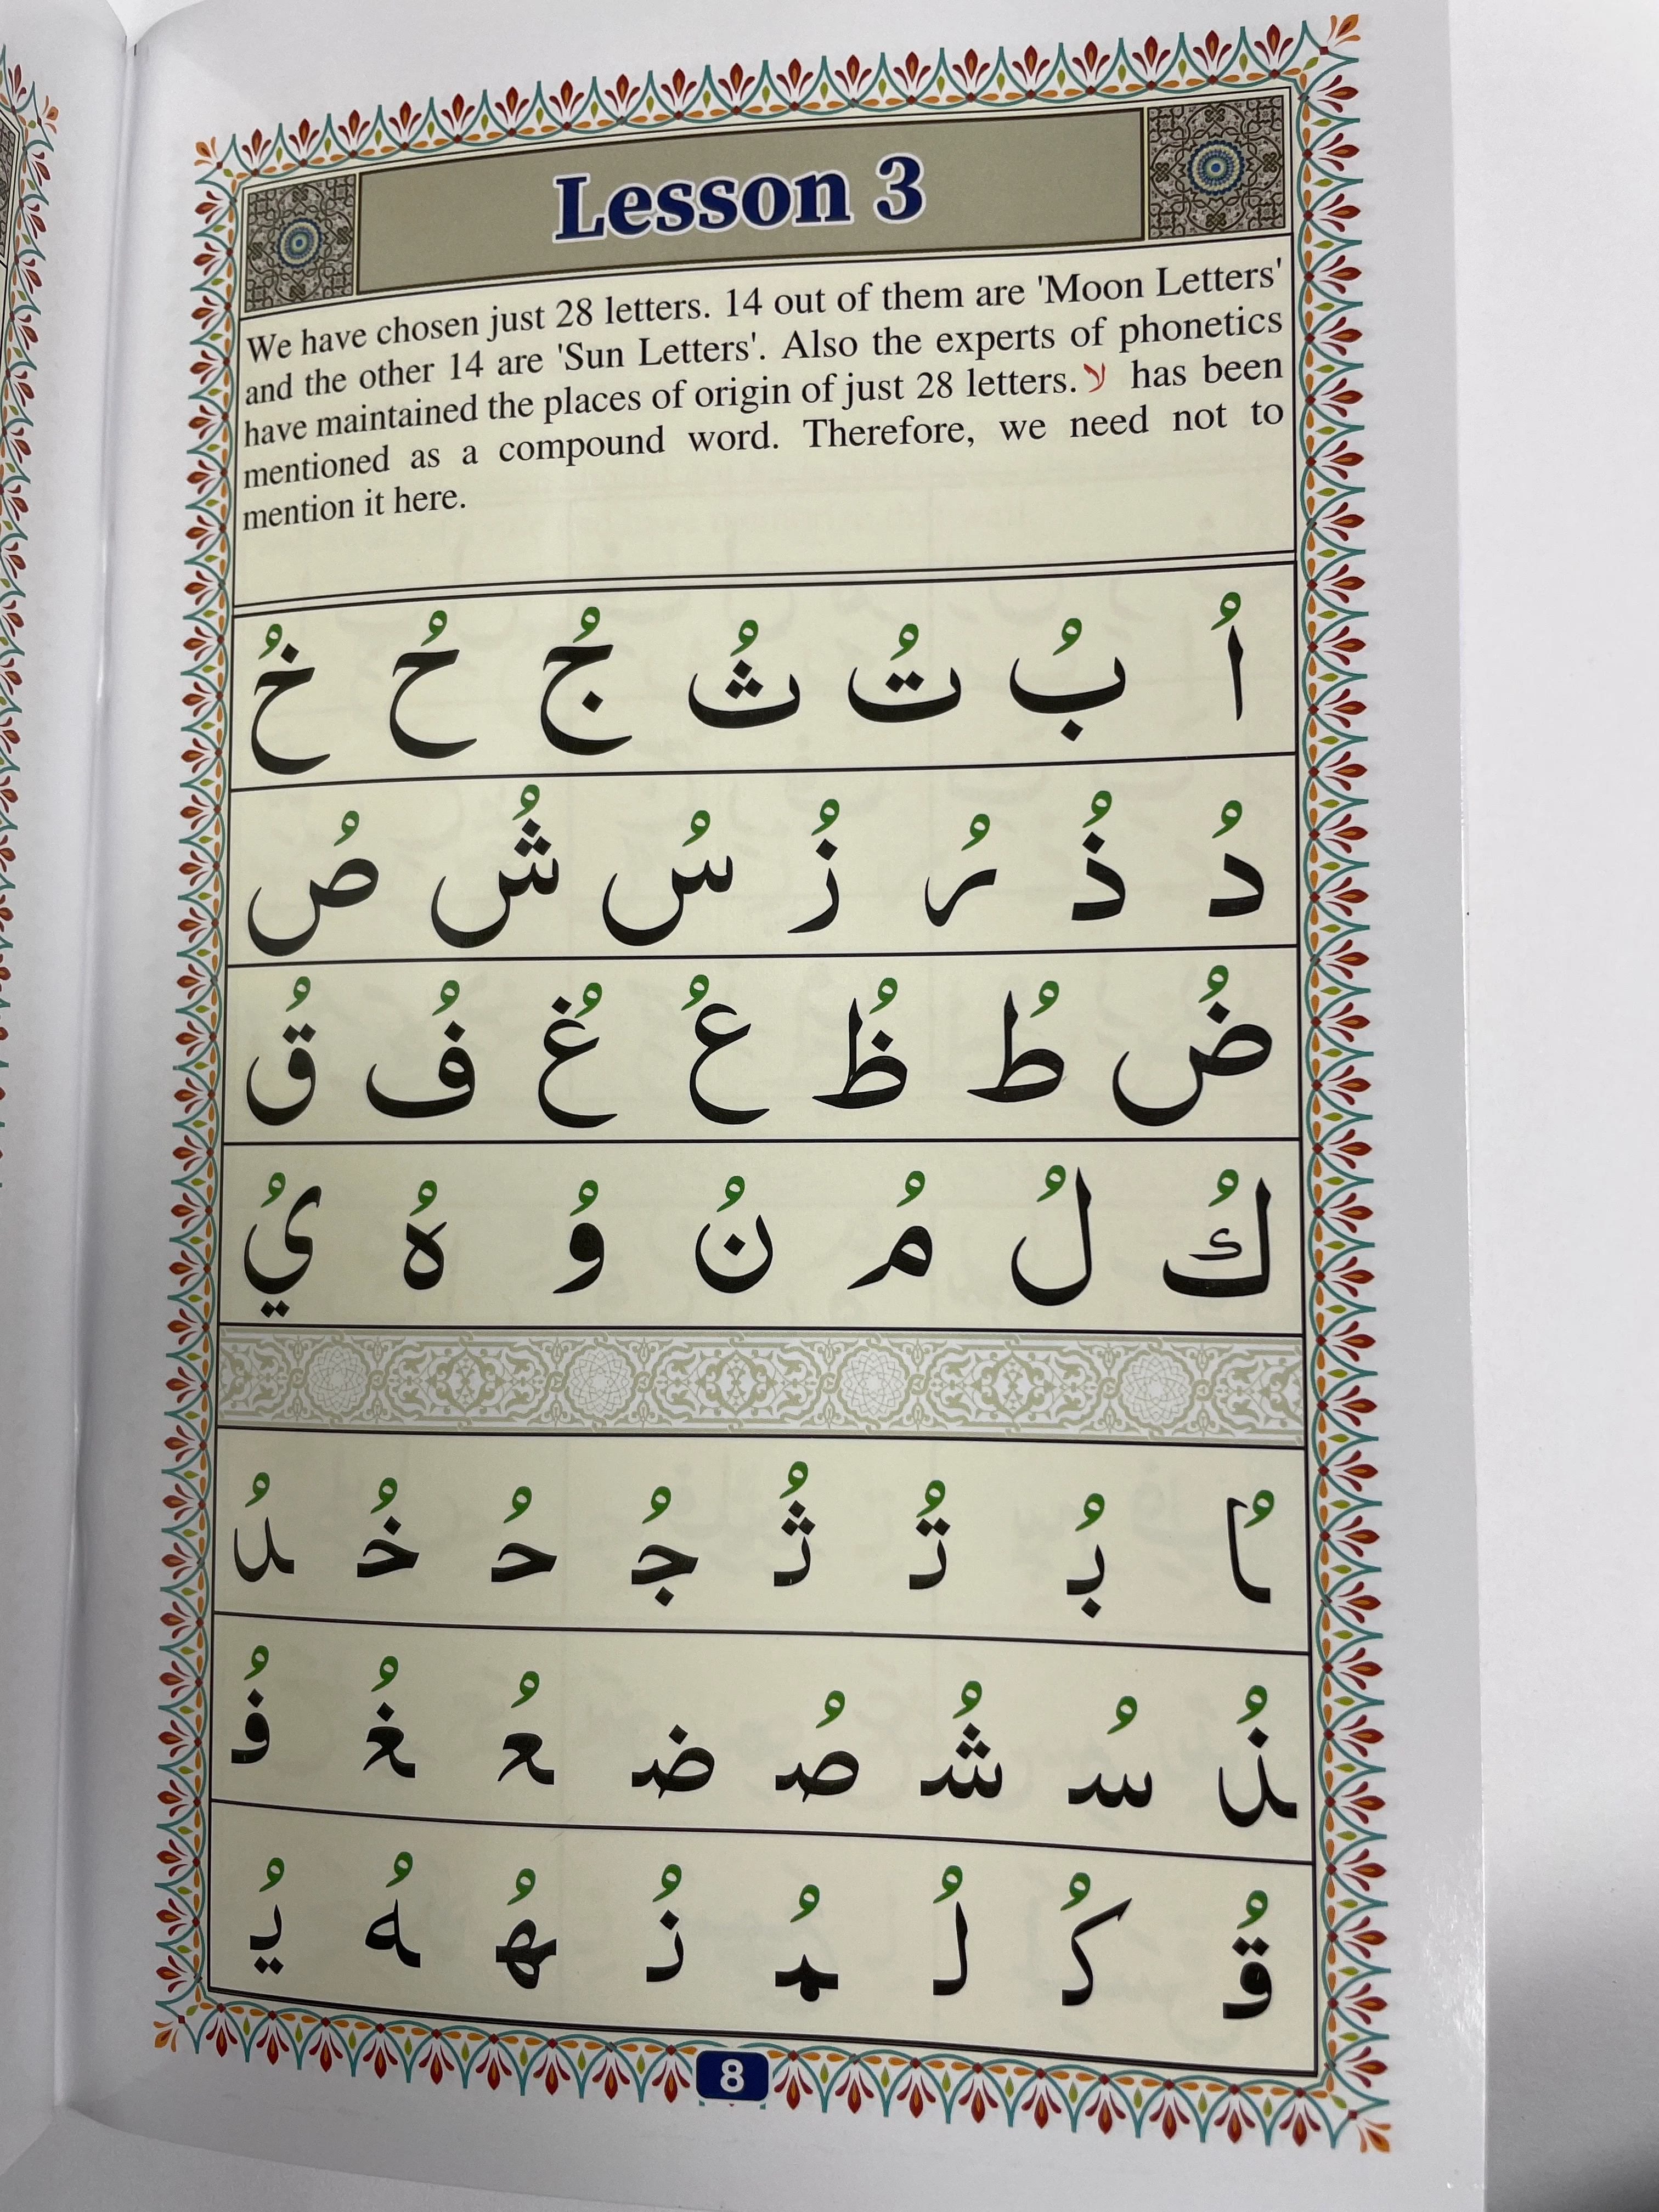 Lesson 3
We have chosen just 28 letters. 14 out of them are 'Moon Letters'
and the other 14 are 'Sun Letters'. Also the experts of phonetics
have maintained the places of origin of just 28 letters. لا has been
mentioned as a compound word. Therefore, we need not to
mention it here.
اُ بُ تُ ثُ جُ حُ خُ
دُ ذُ رُ زُ سُ شُ صُ
ضُ طُ ظُ عُ غُ فُ قُ
كُ لُ مُ نُ وُ هُ يُ
ـاُ بُـ تُـ ثُـ جُـ حُـ خُـ ـدُ
ـذُ سُـ شُـ صُـ ضـ عُـ غُـ فُـ
قُـ كُـ لُـ مُـ نُـ هُـ ـهُ يُـ
8